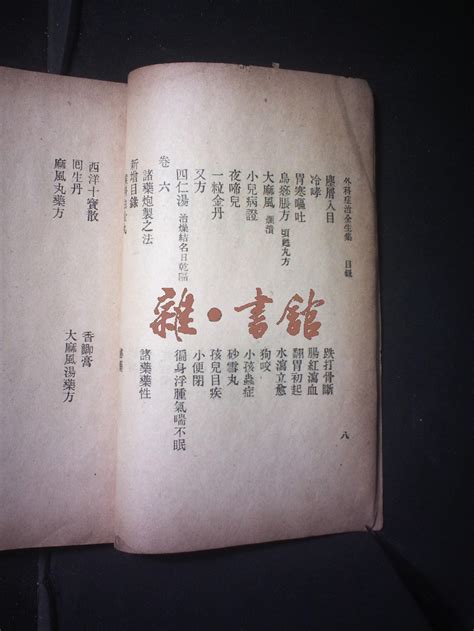 外科症治全生集 目錄 八
塵屑入目 跌打骨斷
冷哮 腸紅瀉血
胃寒嘔吐 翻胃初起
烏痧脹方 丸方 水瀉立愈
大麻風 狗咬
小兒病證 小孩蟲症
夜啼兒 砂雪丸
一粒金丹 孩兒目疾
又方 小便閉
四仁湯 治燥結名曰乾隔 徧身浮腫氣喘不眠
卷六
諸藥炮製之法 諸藥藥性
新增目錄
西洋十寶散 香鯽膏
囘生丹 大麻風湯藥方
麻風丸藥方
雜·書館